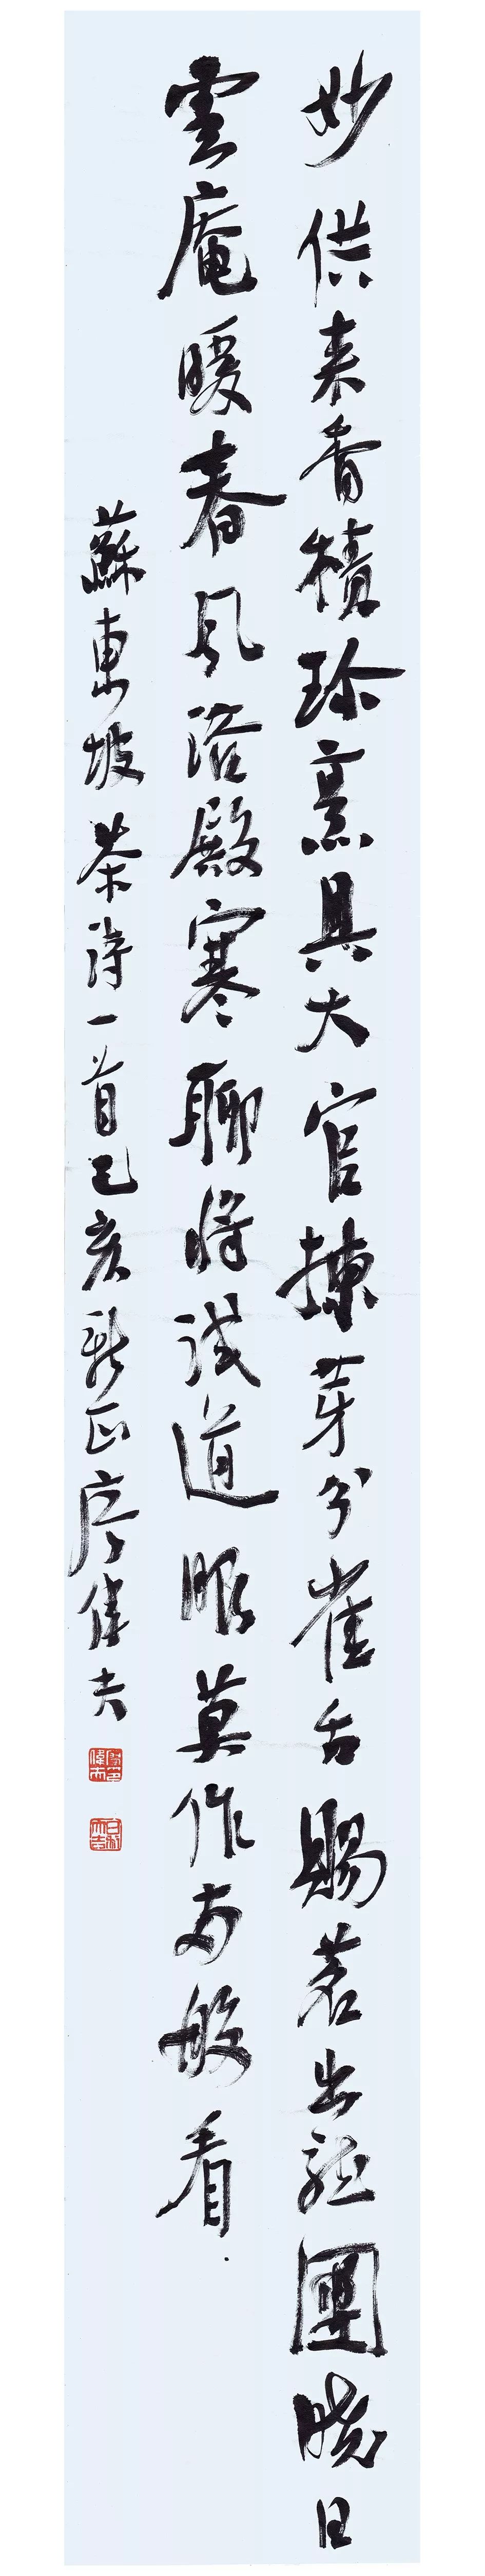 妙供来香積珍烹具大官揀芽分雀舌賜茗出龍團曉日
雲庵暖春風浴殿寒聊將試道眼莫作兩般看
蘇東坡茶詩一首己亥新正廖偉夫